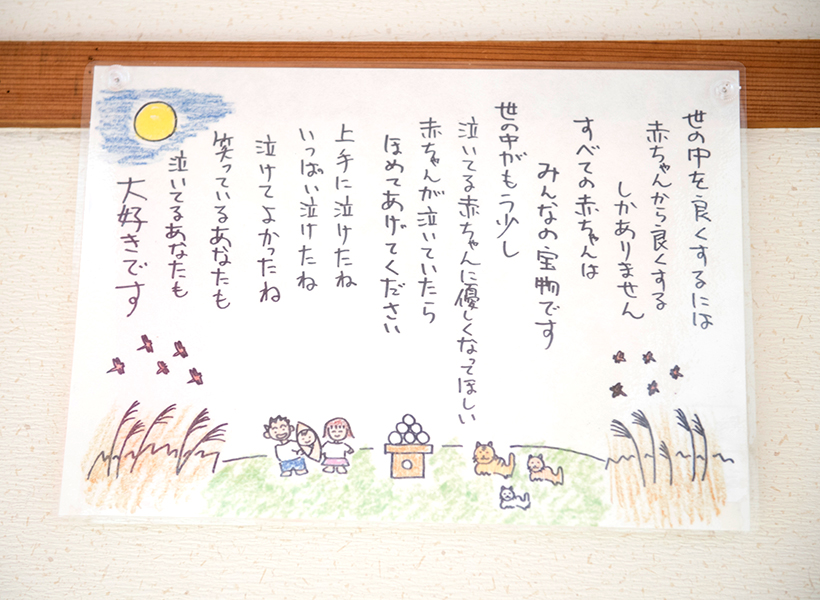 世の中を良くするには
赤ちゃんから良くする
しかありません
すべての赤ちゃんは
みんなの宝物です
世の中がもう少し
泣いてる赤ちゃんに優しくなってほしい
赤ちゃんが泣いていたら
ほめてあげてください
上手に泣けたね
いっぱい泣けたね
泣けてよかったね
笑っているあなたも
泣いてるあなたも
大好きです